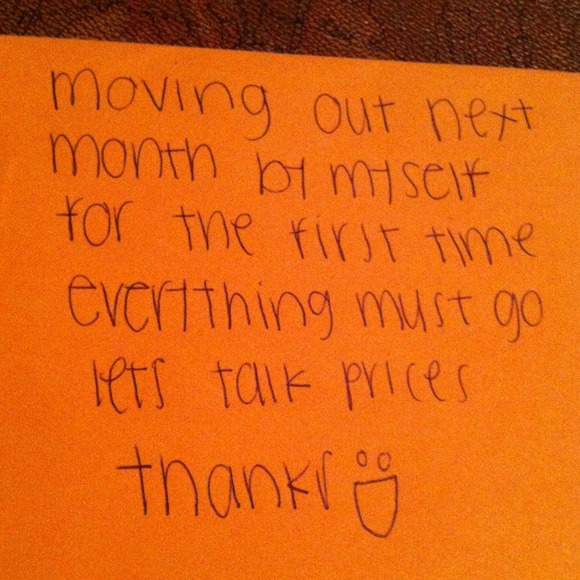 moving out next
month by myself
for the first time
everything must go
lets talk prices
thanks